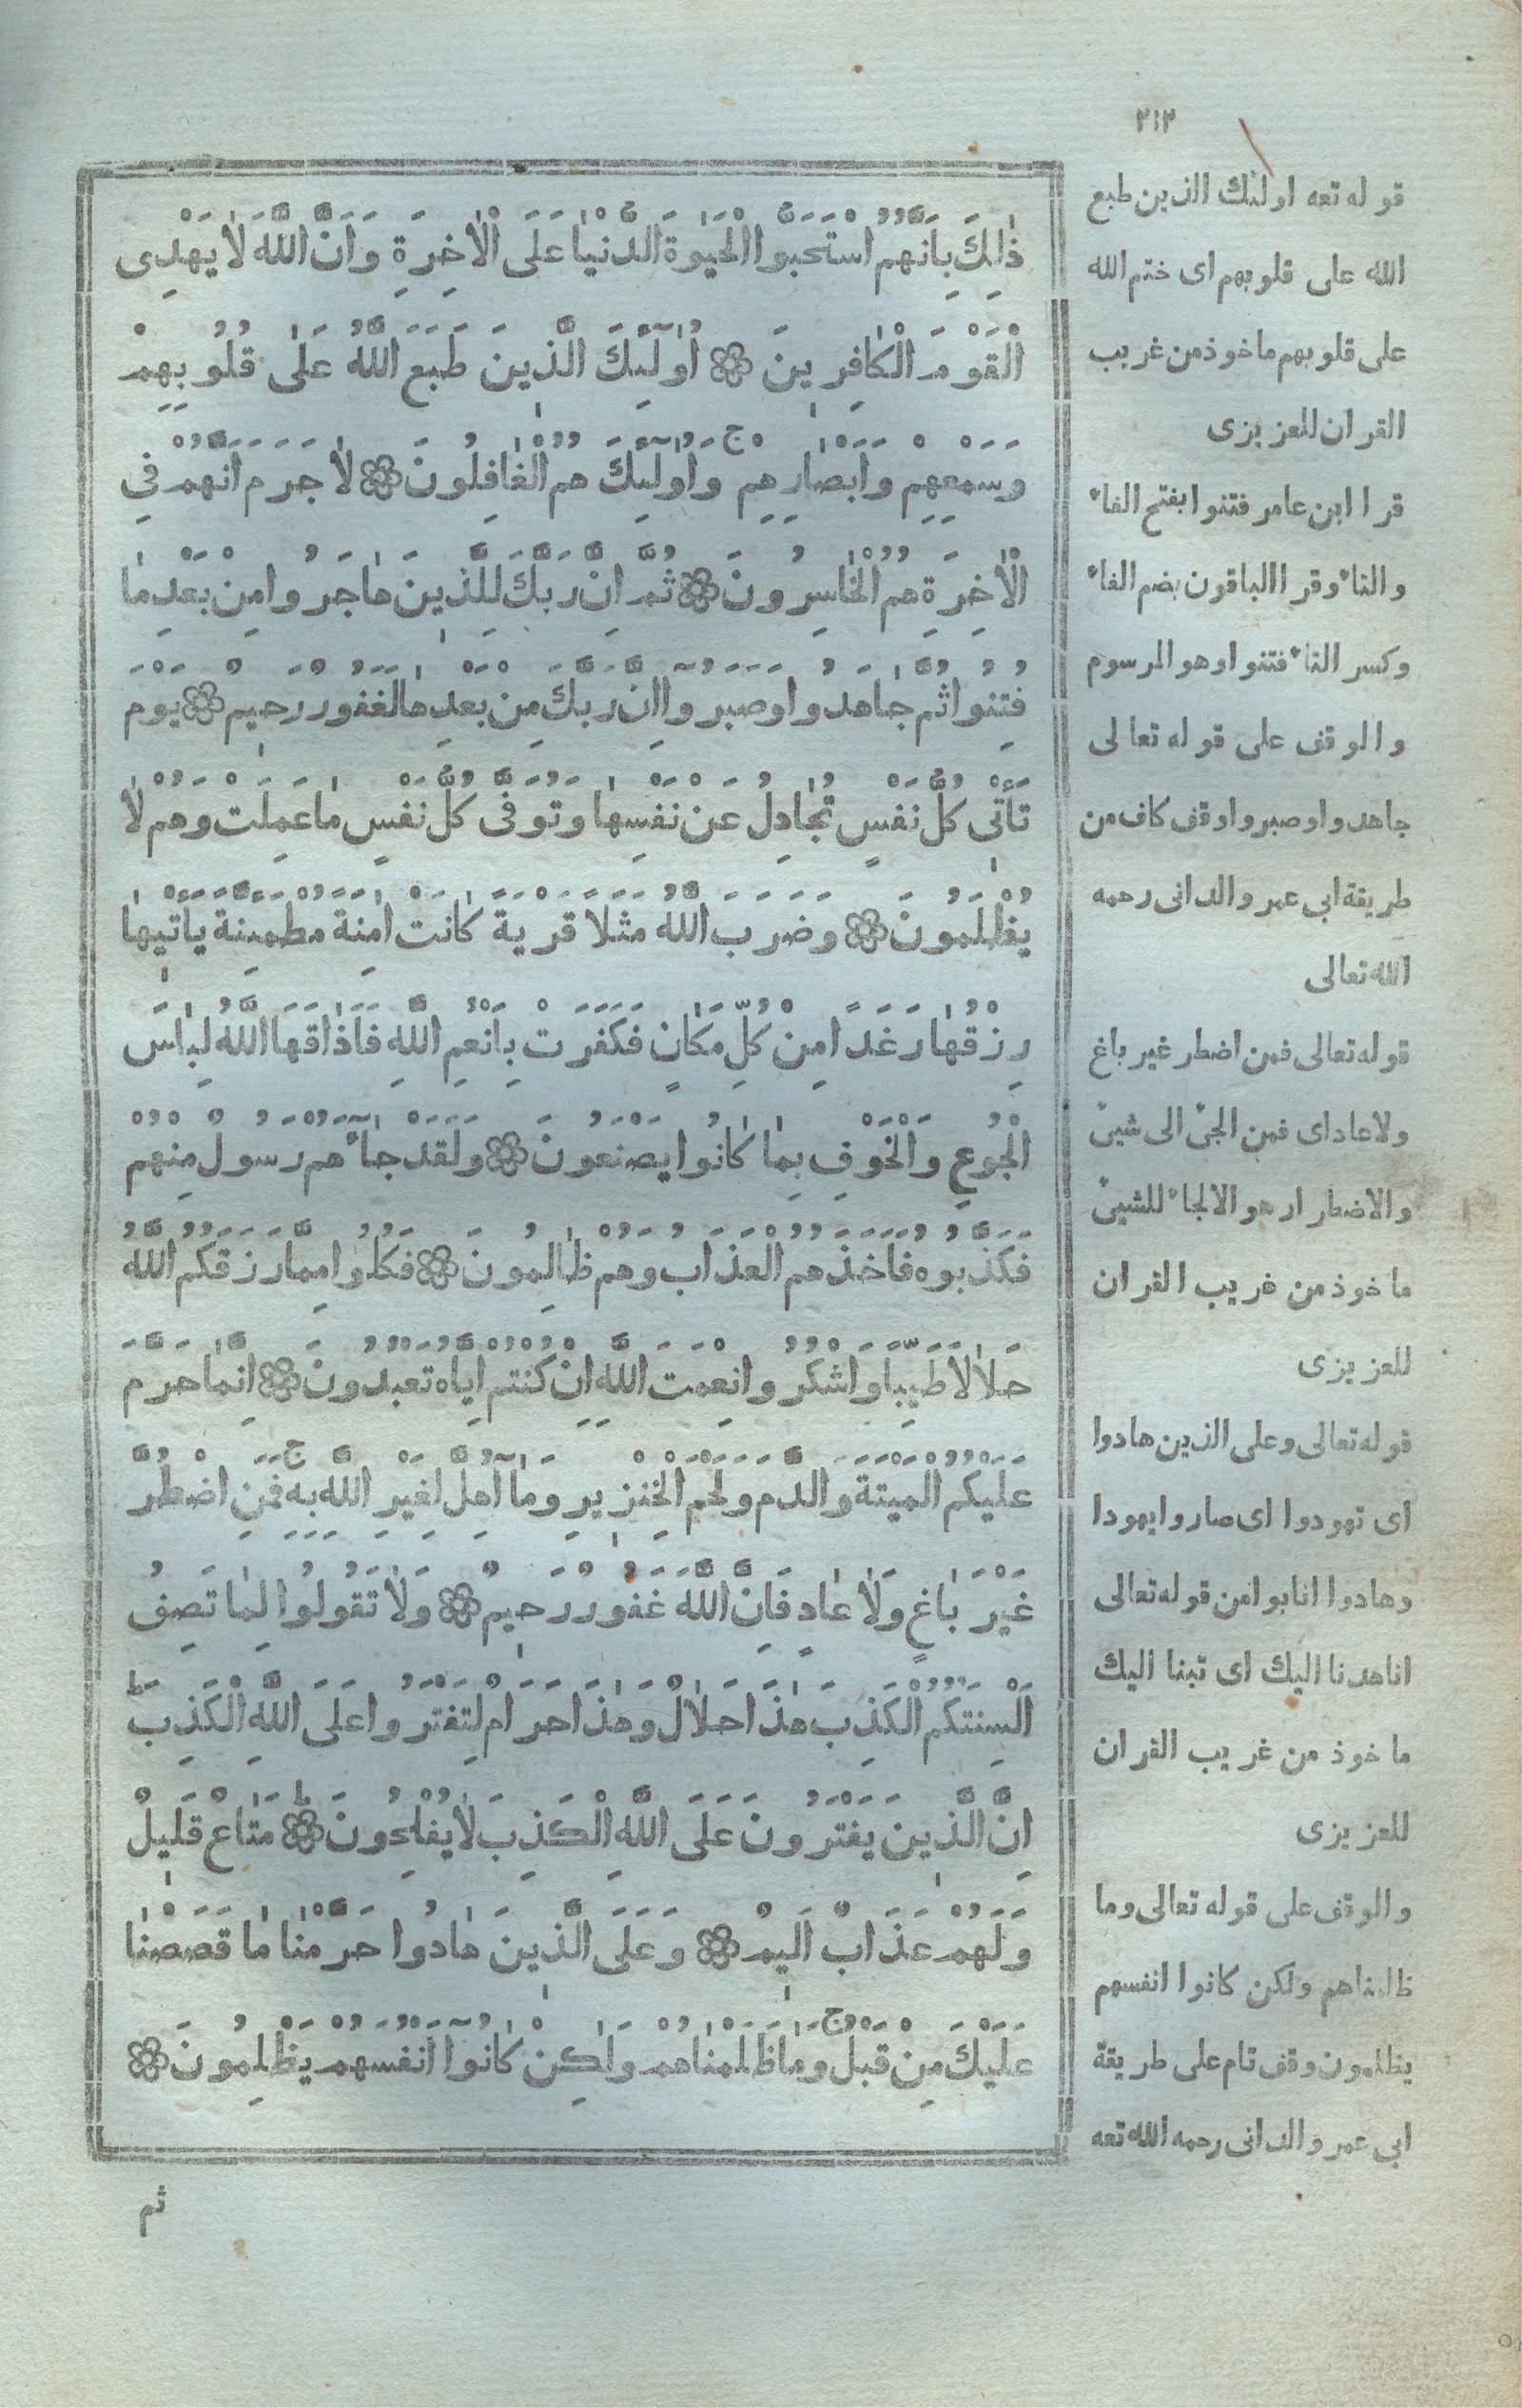 ٢١٢
ذٰلِكَ بِاَنَّهُمُ اسْتَحَبُّوا الْحَيٰوةَ الدُّنْيٰا عَلَى الْاٰخِرَةِ وَاَنَّ اللّٰهَ لَا يَهْدِى
الْقَوْمَ الْكٰافِرِينَ ۝ اُوٰلٓئِكَ الَّذِينَ طَبَعَ اللّٰهُ عَلٰى قُلُوبِهِمْ
وَسَمْعِهِمْ وَاَبْصٰارِهِمْ ۚ وَاُوٰلٓئِكَ هُمُ الْغٰافِلُونَ ۝ لَا جَرَمَ اَنَّهُمْ فِى
الْاٰخِرَةِ هُمُ الْخٰاسِرُونَ ۝ ثُمَّ اِنَّ رَبَّكَ لِلَّذِينَ هٰاجَرُوا مِنْ بَعْدِ مٰا
فُتِنُوا ثُمَّ جٰاهَدُوا وَصَبَرُوا اِنَّ رَبَّكَ مِنْ بَعْدِهٰا لَغَفُورٌ رَحِيمٌ ۝ يَوْمَ
تَأْتِى كُلُّ نَفْسٍ تُجٰادِلُ عَنْ نَفْسِهٰا وَتُوَفّٰى كُلُّ نَفْسٍ مٰا عَمِلَتْ وَهُمْ لَا
يُظْلَمُونَ ۝ وَضَرَبَ اللّٰهُ مَثَلًا قَرْيَةً كٰانَتْ اٰمِنَةً مُطْمَئِنَّةً يَأْتِيهٰا
رِزْقُهٰا رَغَدًا مِنْ كُلِّ مَكٰانٍ فَكَفَرَتْ بِاَنْعُمِ اللّٰهِ فَاَذٰاقَهَا اللّٰهُ لِبٰاسَ
الْجُوعِ وَالْخَوْفِ بِمٰا كٰانُوا يَصْنَعُونَ ۝ وَلَقَدْ جٰٓاءَهُمْ رَسُولٌ مِنْهُمْ
فَكَذَّبُوهُ فَاَخَذَهُمُ الْعَذَابُ وَهُمْ ظٰالِمُونَ ۝ فَكُلُوا مِمّٰا رَزَقَكُمُ اللّٰهُ
حَلَالًا طَيِّبًا وَاشْكُرُوا نِعْمَتَ اللّٰهِ اِنْ كُنْتُمْ اِيّٰاهُ تَعْبُدُونَ ۝ اِنَّمٰا حَرَّمَ
عَلَيْكُمُ الْمَيْتَةَ وَالدَّمَ وَلَحْمَ الْخِنْزِيرِ وَمٰٓا اُهِلَّ لِغَيْرِ اللّٰهِ بِهِ ۚ فَمَنِ اضْطُرَّ
غَيْرَ بٰاغٍ وَلَا عٰادٍ فَاِنَّ اللّٰهَ غَفُورٌ رَحِيمٌ ۝ وَلَا تَقُولُوا لِمٰا تَصِفُ
اَلْسِنَتُكُمُ الْكَذِبَ هٰذَا حَلَالٌ وَهٰذَا حَرَامٌ لِتَفْتَرُوا عَلَى اللّٰهِ الْكَذِبَ ؕ
اِنَّ الَّذِينَ يَفْتَرُونَ عَلَى اللّٰهِ الْكَذِبَ لَا يُفْلِحُونَ ؕ ۝ مَتٰاعٌ قَلِيلٌ
وَلَهُمْ عَذَابٌ اَلِيمٌ ۝ وَعَلَى الَّذِينَ هٰادُوا حَرَّمْنٰا مٰا قَصَصْنٰا
عَلَيْكَ مِنْ قَبْلُ ۚ وَمٰا ظَلَمْنٰاهُمْ وَلٰكِنْ كٰانُوٓا اَنْفُسَهُمْ يَظْلِمُونَ ۝
ثم
قوله تعه اولئك الذين طبع
الله على قلوبهم اى ختم الله
على قلوبهم ماخوذ من غريب
القران للعزيزى
قرا ابن عامر فتنوا بفتح الفاء
والتاء وقرا الباقون بضم الفاء
وكسر التاء فتنوا وهو المرسوم
والوقف على قوله تعالى
جاهدوا وصبروا وقف كاف من
طريقة ابى عمرو الدانى رحمه
الله تعالى
قوله تعالى فمن اضطر غير باغ
ولا عاد اى فمن الجئ الى شيئ
والاضطرار هو الالجاء للشيئ
ماخوذ من غريب القران
للعزيزى
قوله تعالى وعلى الذين هادوا
اى تهودوا اى صاروا يهودا
وهادوا انابوا من قوله تعالى
انا هدنا اليك اى تبنا اليك
ماخوذ من غريب القران
للعزيزى
والوقف على قوله تعالى وما
ظلمناهم ولكن كانوا انفسهم
يظلمون وقف تام على طريقة
ابى عمرو الدانى رحمه الله تعه